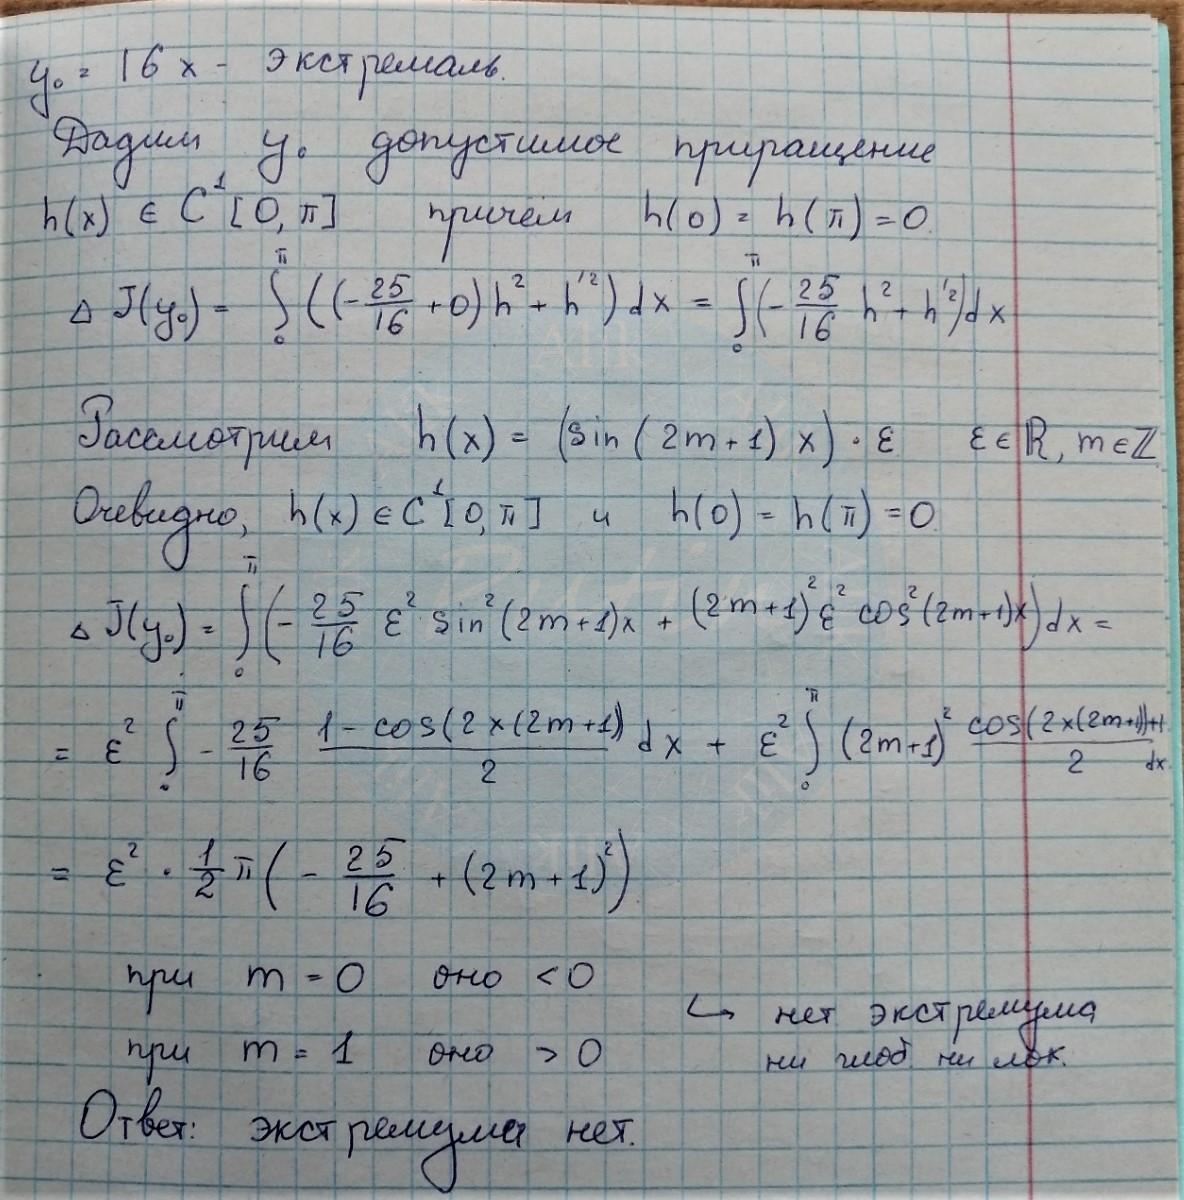 y₀ = 16x - экстремаль.
Дадим y₀ допустимое приращение
h(x) ∈ C¹[0, π] причём h(0) = h(π) = 0.
Δ J(y₀) = ∫₀^π ((-25/16 + 0)h² + h'²) dx = ∫₀^π (-25/16 h² + h'²)dx
Рассмотрим h(x) = (sin(2m+1)x)·ε ε∈ℝ, m∈ℤ
Очевидно, h(x) ∈ C¹[0, π] и h(0) = h(π) = 0.
Δ J(y₀) = ∫₀^π (-25/16 ε² sin²(2m+1)x + (2m+1)² ε² cos²(2m+1)x) dx =
= ε² ∫₀^π -25/16 (1 - cos(2x(2m+1))/2 dx + ε² ∫₀^π (2m+1)² (cos(2x(2m+1))+1)/2 dx
= ε² · 1/2 π (-25/16 + (2m+1)²)
при m = 0 оно < 0
↳ нет экстремума
при m = 1 оно > 0
ни глоб. ни лок.
Ответ: экстремума нет.